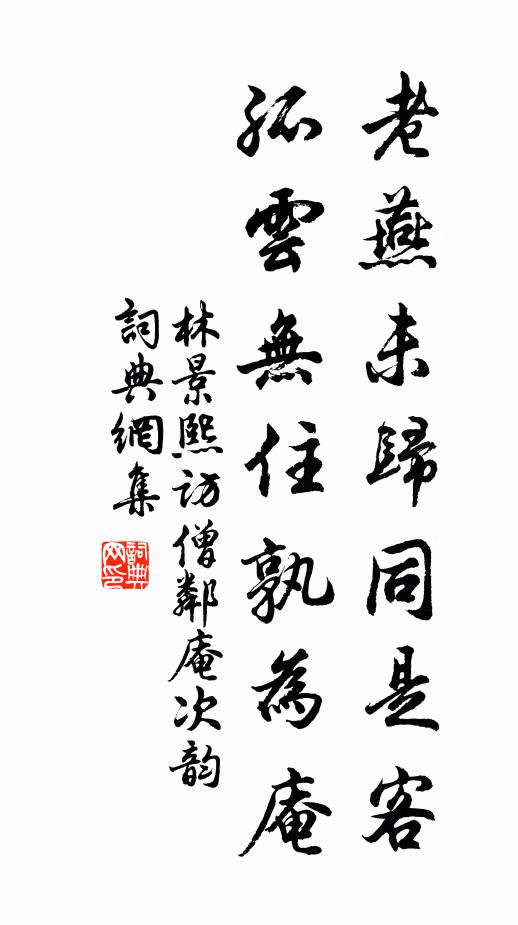 老燕未歸同是客
孤雲無住孰為庵
林景熙訪僧鄰庵次韵
詞典網集
詞典网印